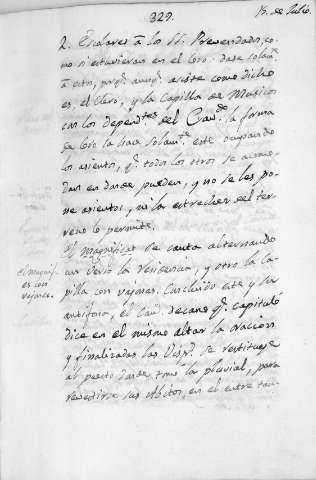 329.
15. de Julio.
2. Esclares à los SS. Prevendados, co-
mo si estuvieran en el Coro: dase solam.te
à esto, porq. aunq. asiste como dicho
es el Clero, y la Capilla de Musicos
con los depend.tes del Cav.do la forma
de Coro la hace solam.te este ocupando
los asientos, q. todos los otros se acomo-
dan en donde pueden, y no se les po-
ne asientos, ni la estrechez del ter-
reno lo permite.
El Magnificat se canta alternando
un Verso la y otro la Ca-
pilla con vajones. Concluido este y su
antifona, el Cav. decano q. capituló
dice en el mismo altar la oracion
y finalizadas las Visp.s se restituye
al puesto donde tomó la pluvial, para
revestirse sus Abitos, en el entretan-
El magnif.
es con
vajones.